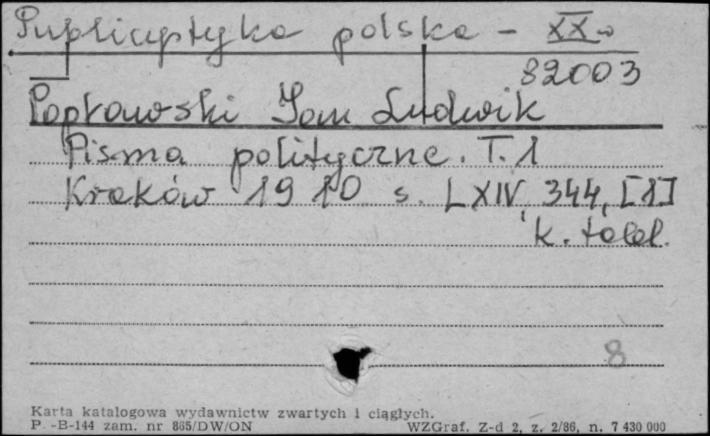 Publicystyka polska - XX w
82003
Popławski Jan Ludwik
Pisma polityczne. T. 1
Kraków 1910 s. LXIV, 344, [1]
k. tabl.
8
Karta katalogowa wydawnictw zwartych i ciągłych.
P. -B-144 zam. nr 865/DW/ON WZGraf. Z-d 2, z. 2/86, n. 7 430 000